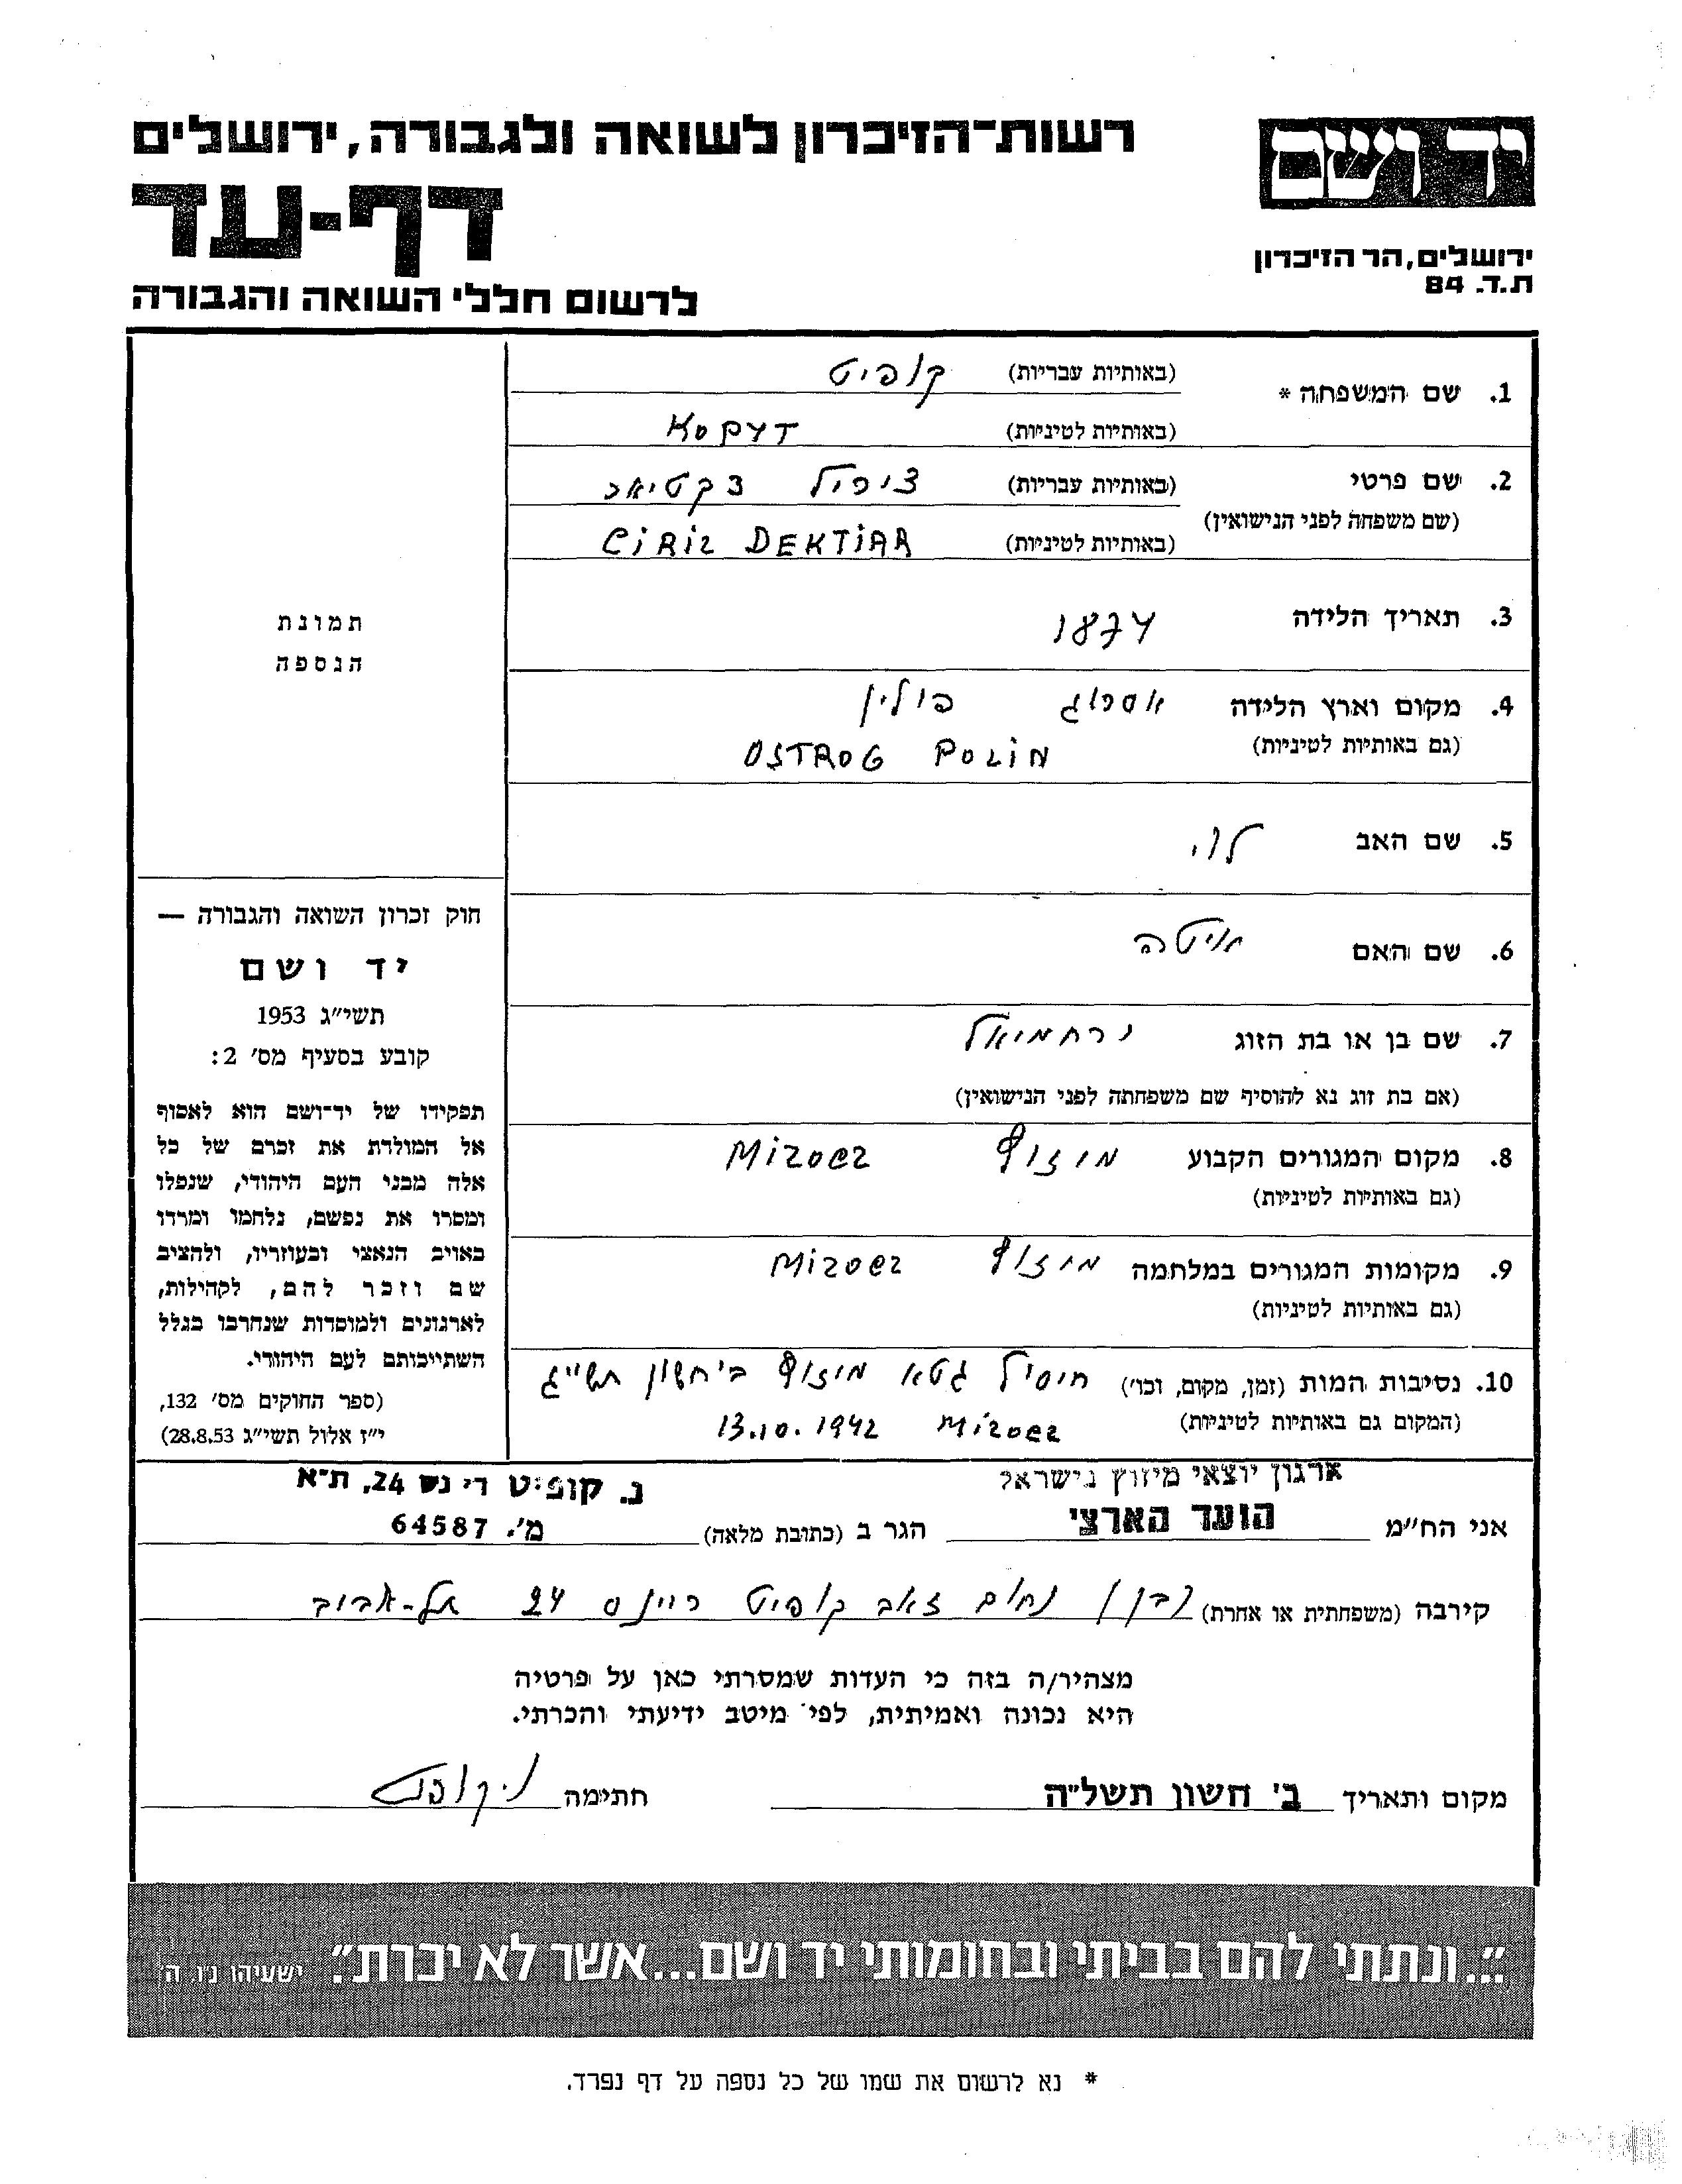 רשות־הזיכרון לשואה ולגבורה, ירושלים
דף-עד
לרשום חללי השואה והגבורה
יד ושם
ירושלים, הר הזיכרון
ת.ד. 84
1. שם המשפחה * (באותיות עבריות) קופיט
(באותיות לטיניות) KOPYT
2. שם פרטי (באותיות עבריות) ציריל
(שם משפחה לפני הנישואין)
(באותיות לטיניות) CiRiL DEKTiAR
3. תאריך הלידה 1874
4. מקום וארץ הלידה אסרוג פולין
(גם באותיות לטיניות) OSTROG POLiN
5. שם האב לוי
6. שם האם
7. שם בן או בת הזוג ירחמיאל
(אם בת זוג נא להוסיף שם משפחתה לפני הנישואין)
8. מקום המגורים הקבוע מיזוץ Mizocz
(גם באותיות לטיניות)
9. מקומות המגורים במלחמה מיזוץ Mizocz
(גם באותיות לטיניות)
10. נסיבות המות (זמן, מקום, וכו') חיסול גטא מיזוץ ב' חשון תש"ג
(המקום גם באותיות לטיניות) Mizocz 13.10.1942
תמונת
הנספה
חוק זכרון השואה והגבורה —
יד ושם
תשי"ג 1953
קובע בסעיף מס' 2:
תפקידו של יד־ושם הוא לאסוף
אל המולדת את זכרם של כל
אלה מבני העם היהודי, שנפלו
ומסרו את נפשם, נלחמו ומרדו
באויב הנאצי ובעוזריו, ולהציב
שם וזכר להם, לקהילות,
לארגונים ולמוסדות שנחרבו בגלל
השתייכותם לעם היהודי.
(ספר החוקים מס' 132,
י"ז אלול תשי"ג 28.8.53)
ארגון יוצאי מיזוץ בישראל נ. קופיט ריינס 24, ת"א
אני הח"מ הועד הארצי הגר ב (כתובת מלאה) מ'. 64587
קירבה (משפחתית או אחרת) (בן) נחום זאב קופיט ריינס 24 תל-אביב
מצהיר/ה בזה כי העדות שמסרתי כאן על פרטיה
היא נכונה ואמיתית, לפי מיטב ידיעתי והכרתי.
מקום ותאריך ב' חשון תשל"ה חתימה נ. קופיט
"...ונתתי להם בביתי ובחומותי יד ושם...אשר לא יכרת". ישעיהו נ"ו, ה'
* נא לרשום את שמו של כל נספה על דף נפרד.